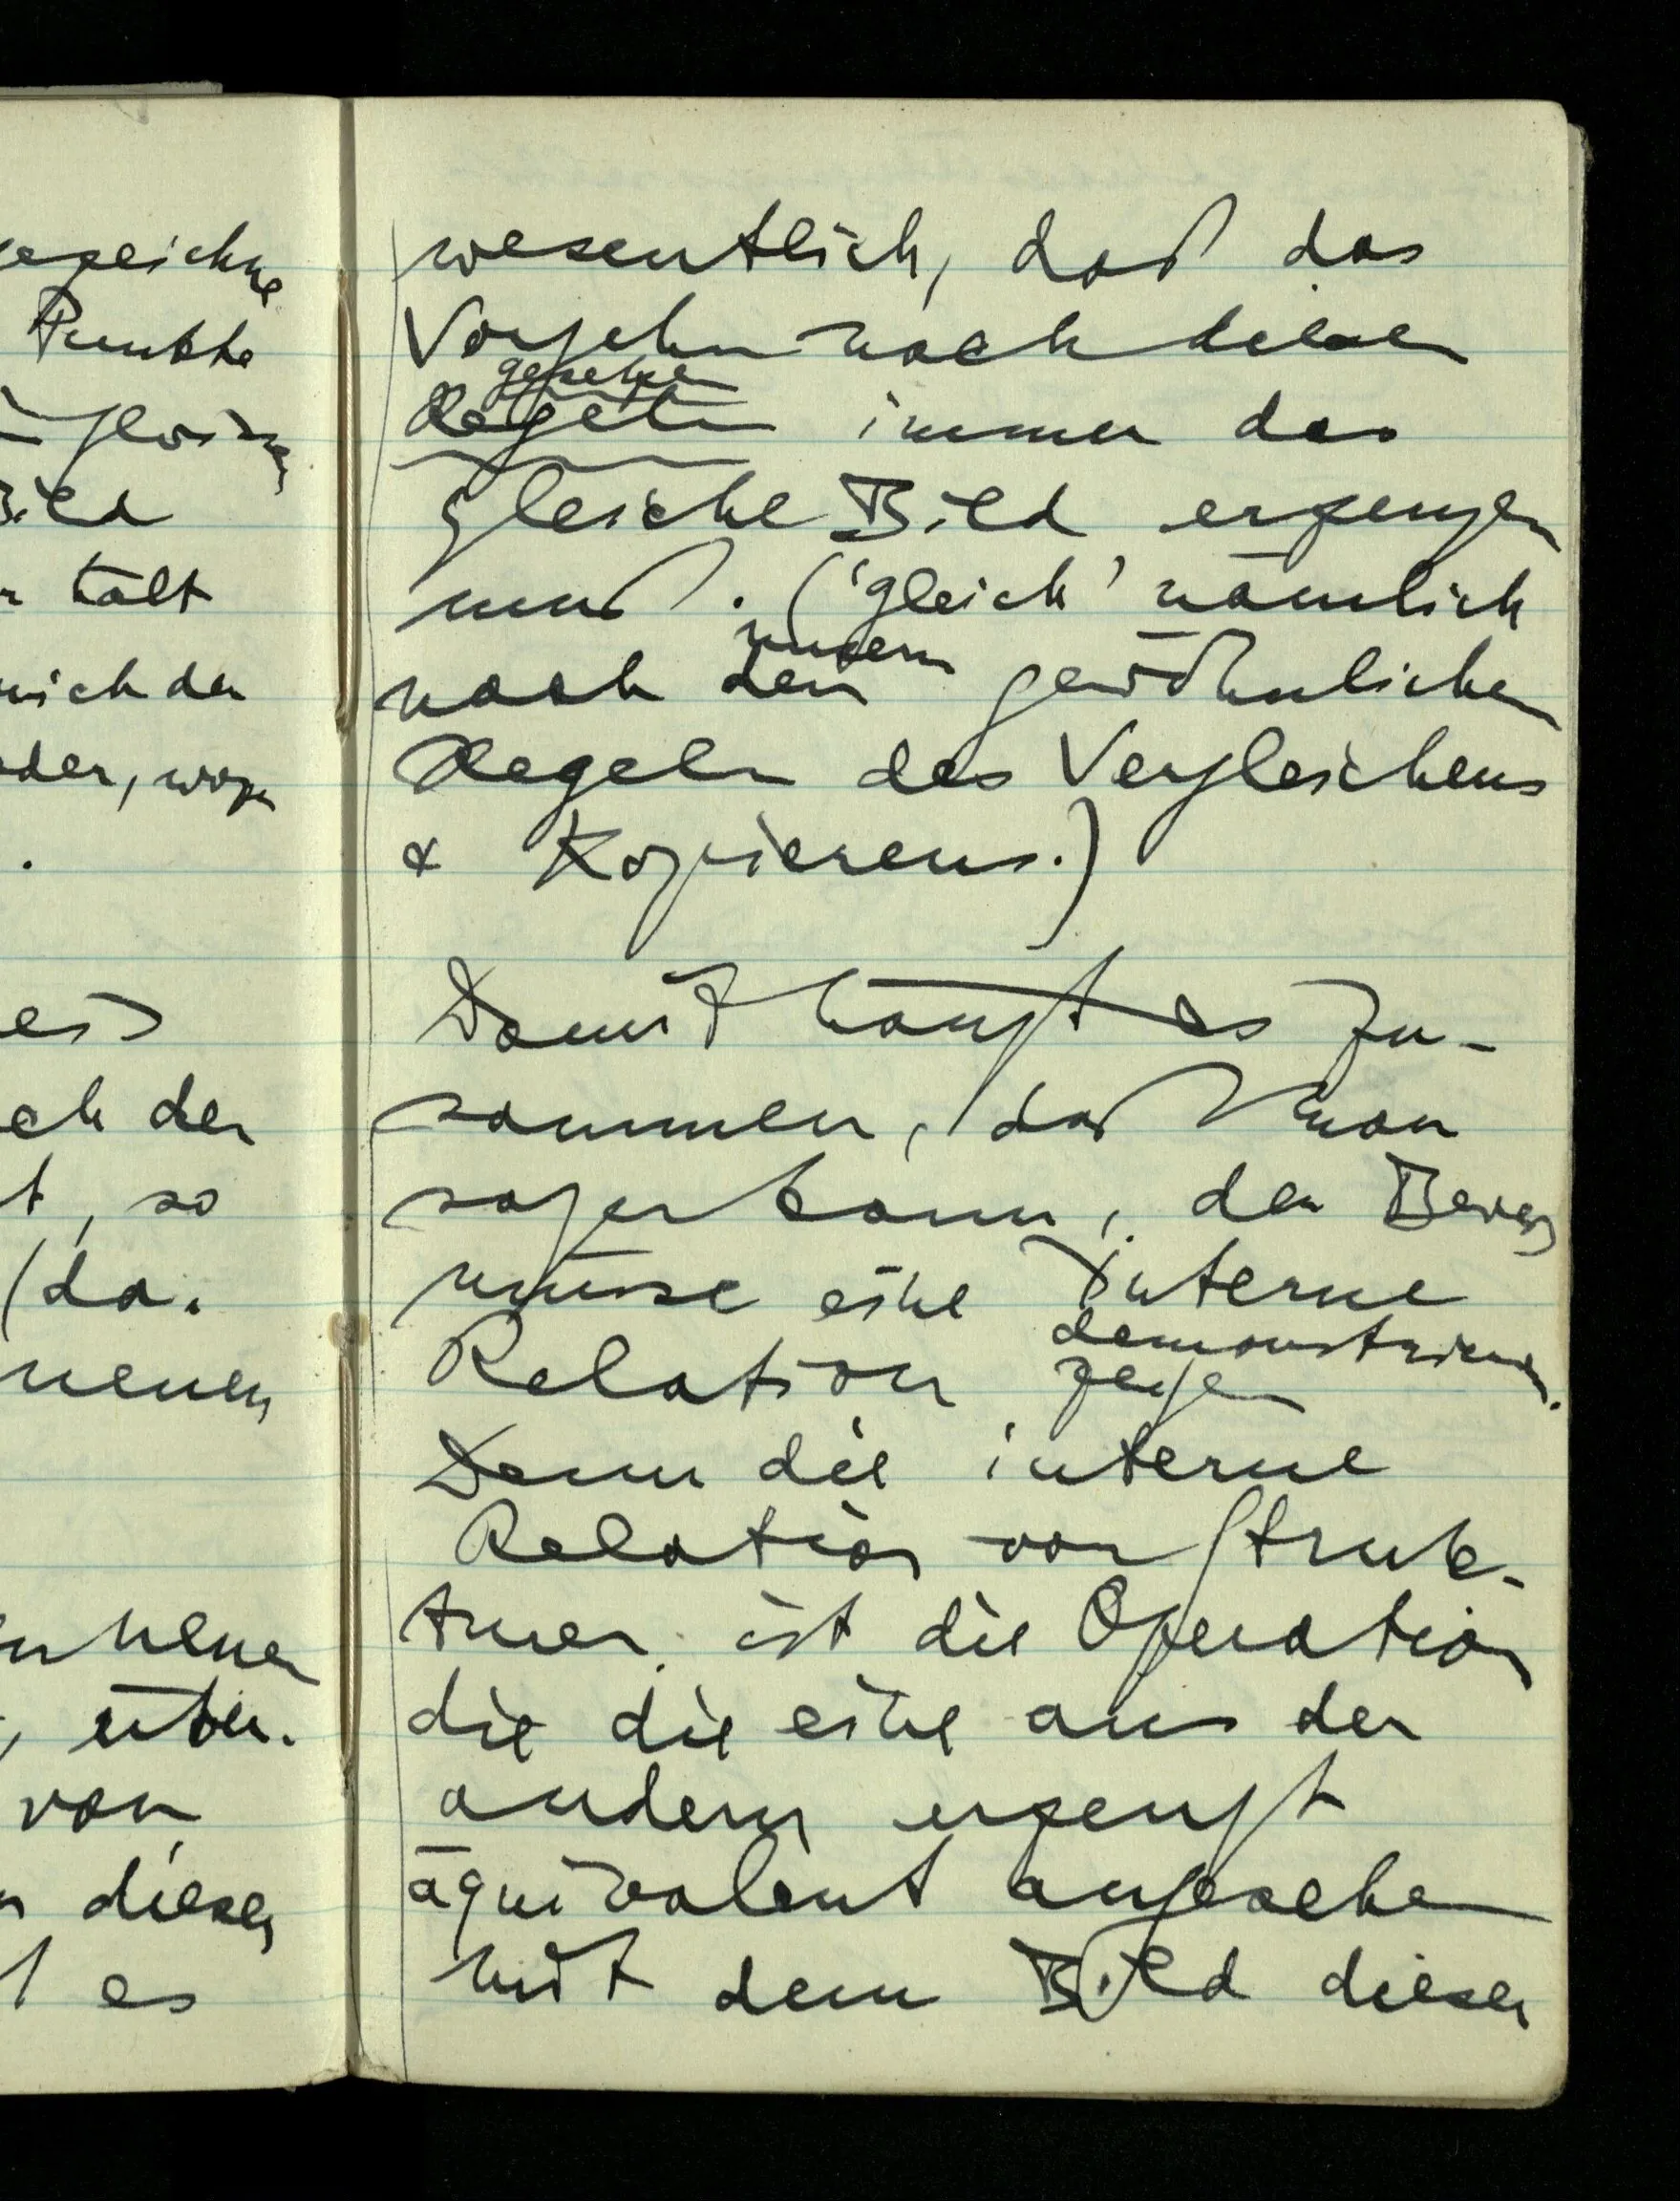 Punkte
Bild
hält
mich der
oder, wozu
.
ch der
t, so
(da.
neuen
neuen
von
dieser
es
wesentlich, daß das
Vorgehn nach diesen
gesehen
Regeln immer das
gleiche Bild erzeugen
muß. ('gleich' nämlich
unsern
nach den gewöhnlichen
Regeln des Vergleichens
& Kopierens.)
Damit hängt es zu-
sammen, daß man
sagen kann, der Beweis
müsse eine interne
demonstrieren.
Relation zeigen
Denn die interne
Relation von Struk-
turen ist die Operation
die die eine aus der
andern erzeugt
äquivalent angesehen
mit dem Bild dieser